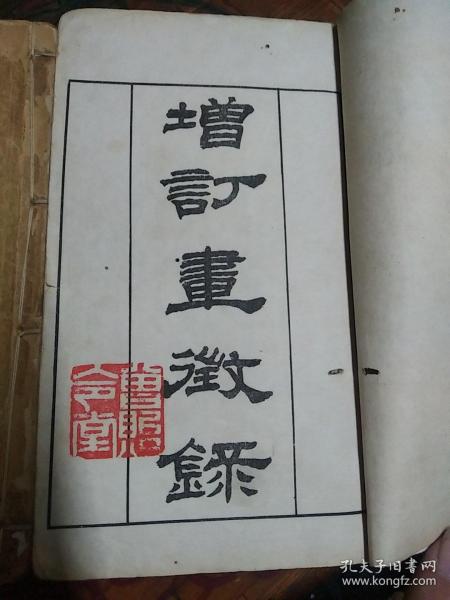 增訂畫徵錄
孔夫子旧书网
www.kongfz.com